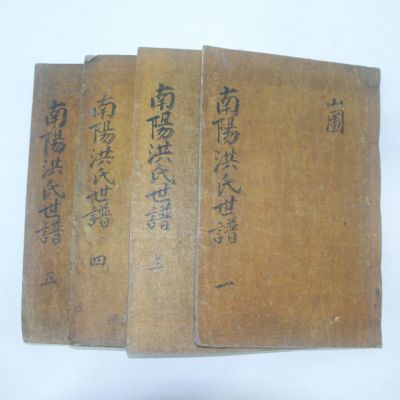 山圖
南陽洪氏世譜 一
南陽洪氏世譜 三
南陽洪氏世譜 四
南陽洪氏世譜 五